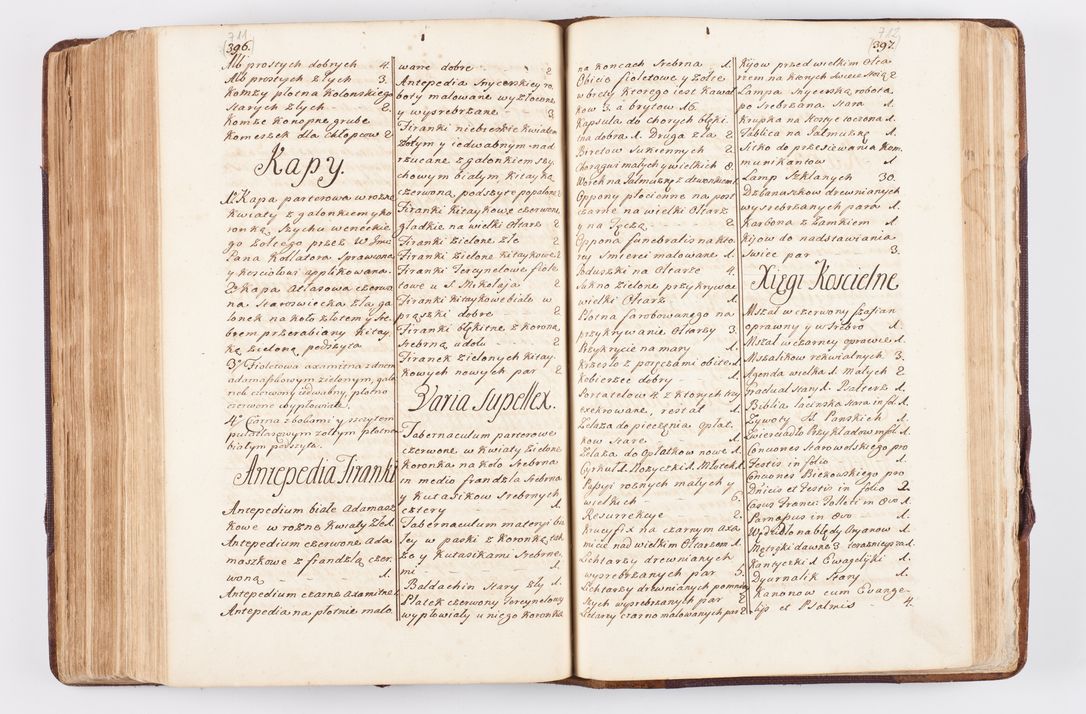 711
(396.)
Alb prostych dobrych 4.
Alb prostych złych 3.
Komży płotna Kolonskiego
starych złych 2.
Komże konopne grube
Komeszek dla chłopcow 2
Kapy.
1mo Kapa parterowa w rożne
kwiaty z galonkiem y ko
ronką szychu weneckie
go żołtego przez W Jmci
Pana Kollatora sprawiona
y kosciołowi applikowana.
2do Kapa Atłasowa czerwo
na staroswiecka zła ga
lonek na koło złotem y sre
brem przerabiany kitay
ką zieloną podszyta
3o Fioletowa axamitna z dnem
adamaszkowym zielonym, galo
nek czerwony jedwabny, płotno
czerwone wypłowiałe.
4o Czarna z bokami y szczytem
pułatłasowym żołtym płotno
białym podszyta.
Antepedia Firanki
Antepedium białe Adamasz
kowe w rożne kwiaty Złe 1.
Antepedium czerwone Ada
maszkowe z frandzlą czer
woną 1.
Antepedium czarne Axamitne 1
Antepedia na płotnie malo
wane dobre 2
Antepedia Snycerskiey ro
boty malowane wyzłocone
y wysrebrzane 3
Firanki niebieskie kwiatem
żołtym y jedwabnym nad
rzucane z galonkiem szy
chowym białym kitayką
czerwoną podszyte popalone 2
Firanki kitaykowe czerwone
gładkie na wielki Ołtarz 2
Firanki zielone złe 2
Firanki zielone kitaykowe 2
Firanki Tercynelowe fiole
towe u S. Mikołaja 2
Firanki kitaykowe białe w
prążki dobre 2
Firanki błękitne z koroną
srebrną u dołu 2
Firanek zielonych kitay.
kowych nowych par 2
Varia Supellex.
Tabernaculum parterowe
czerwone w kwiaty zielone
koronka na koło srebrna
in medio frandzla srebrna
y kutasikow srebrnych
cztery 1.
Tabernaculum materyi bia
łey w paski z koronką tak
że y kutasikami srebrne
mi 1.
Baldachin stary zły 1.
Płatek czerwony Tercynelowy
wypłowiały u niego koronka
712
(397.)
na koncach srebrna 1.
Obicie fioletowe y żołte
w bryty ktorego jest kawał
kow 3. a brytow 16.
Kapsula do chorych błęki
tna dobra 1. Druga zła 2
Biretow sukiennych 2
Chorągwi małych y wielkich 8.
Worek na Jałmużnę z dzwonkiem 1.
Oppony płocienne na post
czarne na wielki Ołtarz
y na Tęczą 2
Oppona funebralis na kto
rey smierci malowane 1.
Poduszki na Ołtarze 4.
Sukno zielone przykrywać
wielki Ołtarz 1.
Płotna farbowanego na
przykrywanie Ołtarzy 3.
Przykrycie na mary 1.
Krzesło z poręczami obite 1.
Kobierzec dobry 1.
Portatelow 4. z ktorych trzy
exekrowane, restat 1.
Żelaza do pieczenia opłat
kow stare 1.
Żelaza do opłatkow nowe 1.
Cyrkuł 1. Nożyczki 1. Młotek 1.
Passyi rożnych małych y
wielkich 6.
Resurrekcye 2.
Krucyfix na czarnym axa
micie nad wielkim Ołtarzem 1.
Lichtarzy drewnianych
wysrebrzanych par 5.
Lichtarzy drewnianych pomniey
szych wysrebrzanych par 2
Lichtarzy czarno malowanych par 2
Kijow przed wielkim Ołta
rzem na ktorych świece stoią 2
Lampa snycerską robotą
po srebrzana stara 1.
Krupka na Hostye toczona 1.
Tablica na Jałmużnę 1.
Sitko do przesiewania Kom
munikantow 1.
Lamp szklanych 30.
Dzbanuszkow drewnianych
wysrebrzanych para 1.
Karbona z zamkiem 1.
Kijow do nadstawiania
Swiec par 3.
Xięgi Koscielne
Mszał w czerwony szafian
oprawny y w srebro 1.
Mszał w czarney oprawie 1.
Mszalikow rekwialnych 3.
Agenda wielka 1. Małych 2
Graduał stary 1. Psałterz 1.
Biblia łacinska stara in fol 1.
Zywoty SS Panskich 1.
Zwierciadło Przykładow in fol 1.
Conciones Starowolskiego pro
Festis in folio 1.
Conciones Bieżowskiego pro
Dnicis et Festis in folio 2.
Casus Franci: Tolleti in 8vo 1.
Parnassus in 8vo 1.
Wędzidło na błędy Aryanow 1.
Metryki dawne 3. terazniejsza 1.
Kantyczki 1. Ewangelijki 1.
Dyurnalik stary 1.
Kanonow cum Evange-
lijs et Psalmis 4.